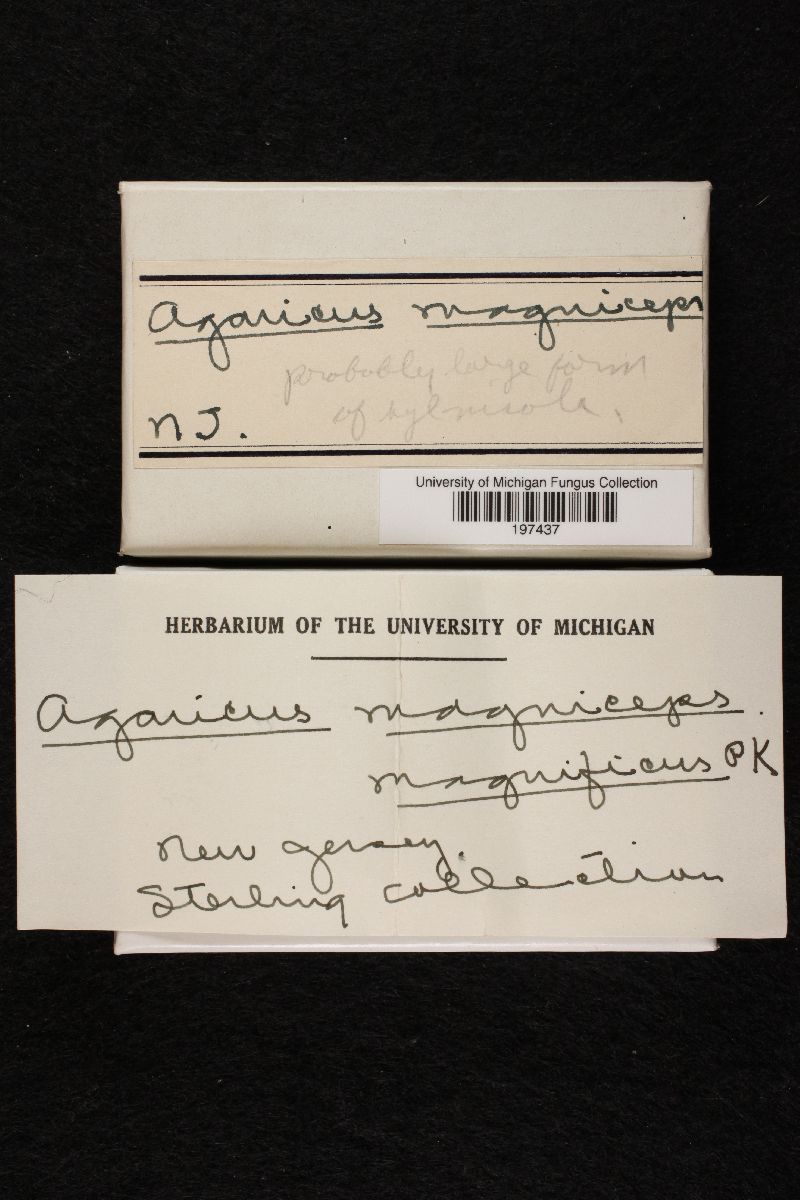 Agaricus magniceps
probably large form
of sylvicola.
N J.
University of Michigan Fungus Collection
197437
HERBARIUM OF THE UNIVERSITY OF MICHIGAN
Agaricus magniceps.
magnificus PK
New Jersey.
Sterling collection